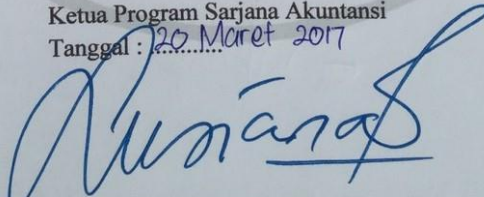 Ketua Program Sarjana Akuntansi
Tanggal : 20 Maret 2017